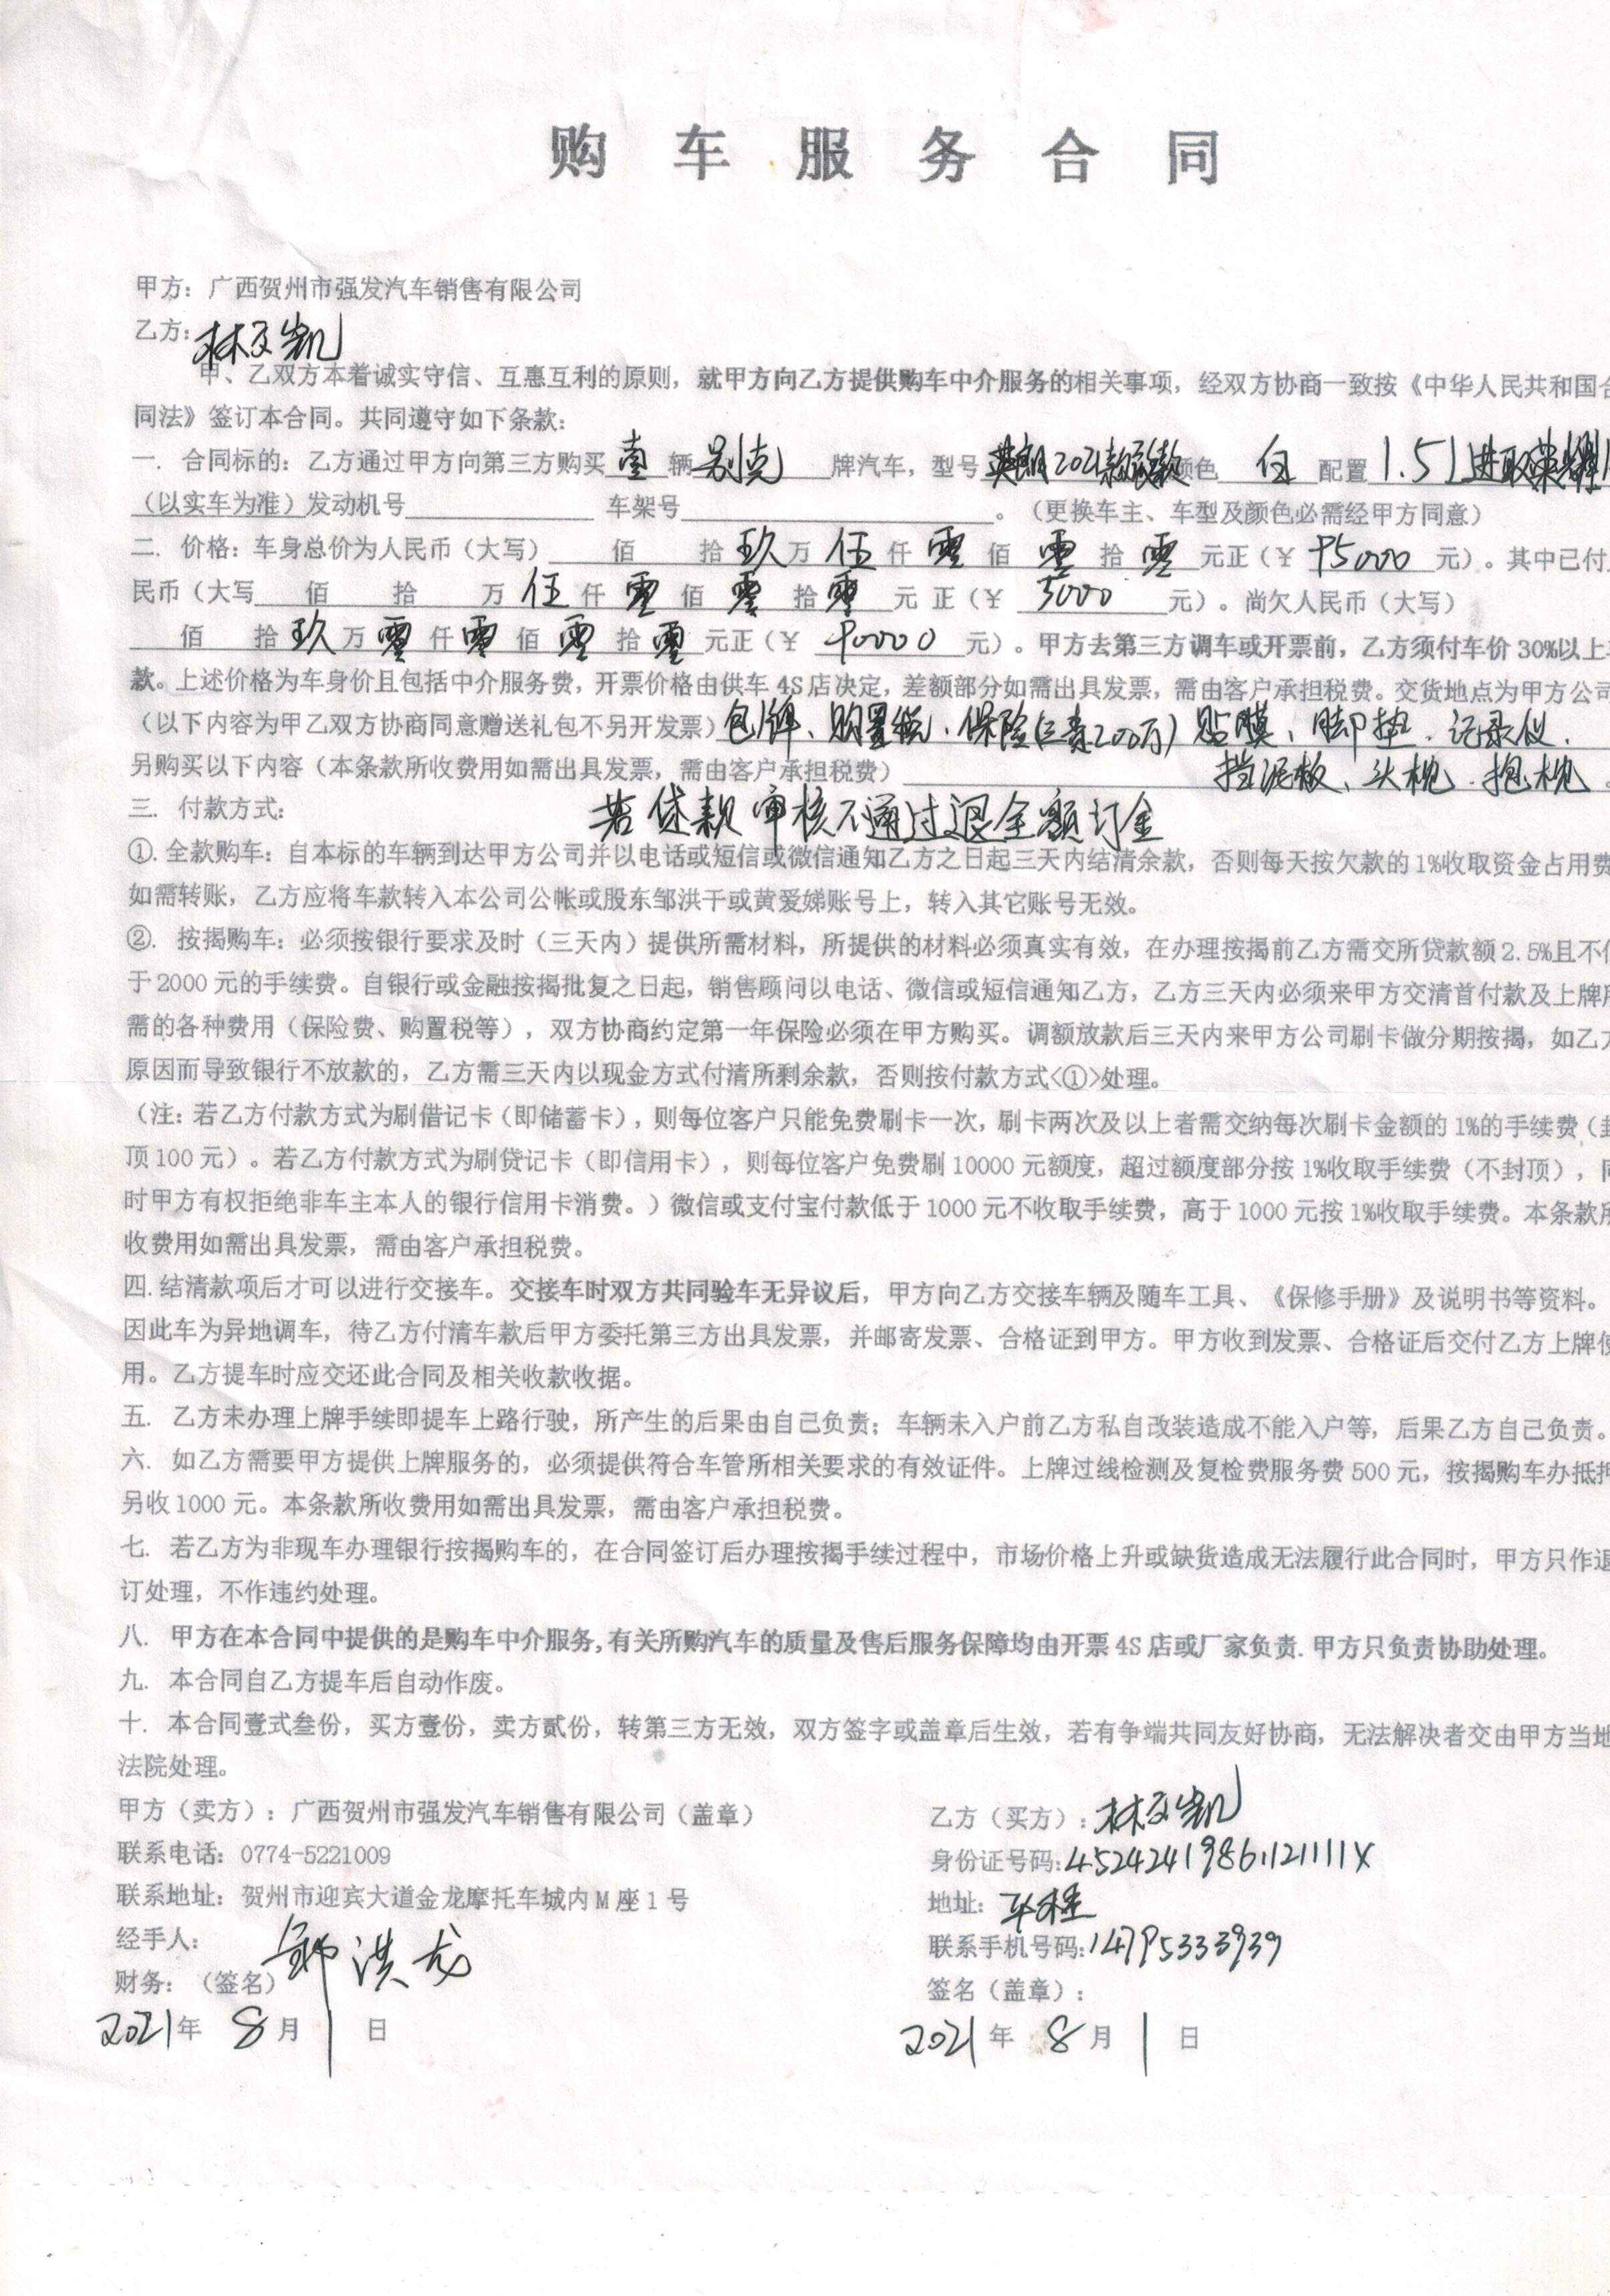 购车服务合同
甲方：广西贺州市强发汽车销售有限公司
乙方：林文凯
甲、乙双方本着诚实守信、互惠互利的原则，就甲方向乙方提供购车中介服务的相关事项，经双方协商一致按《中华人民共和国合
同法》签订本合同。共同遵守如下条款：
一. 合同标的：乙方通过甲方向第三方购买 壹 辆 别克 牌汽车，型号 英朗2021款 颜色 白 配置 1.5L进取荣耀
（以实车为准）发动机号 车架号 。（更换车主、车型及颜色必需经甲方同意）
二. 价格：车身总价为人民币（大写） 佰 拾 玖 万 伍 仟 零 佰 零 拾 零 元正（￥ 95000 元）。其中已付
民币（大写 佰 拾 万 伍 仟 零 佰 零 拾 零 元 正（￥ 5000 元）。尚欠人民币（大写）
佰 拾 玖 万 零 仟 零 佰 零 拾 零 元正（￥ 90000 元）。甲方去第三方调车或开票前，乙方须付车价30%以上
款。上述价格为车身价且包括中介服务费，开票价格由供车4S店决定，差额部分如需出具发票，需由客户承担税费。交货地点为甲方公司
（以下内容为甲乙双方协商同意赠送礼包不另开发票）包牌、购置税、保险(三责200万) 贴膜、脚垫、记录仪、
另购买以下内容（本条款所收费用如需出具发票，需由客户承担税费） 挡泥板、头枕、抱枕。
三. 付款方式： 若贷款审核不通过退全额订金
①. 全款购车：自本标的车辆到达甲方公司并以电话或短信或微信通知乙方之日起三天内结清余款，否则每天按欠款的1%收取资金占用费
如需转账，乙方应将车款转入本公司公帐或股东邹洪干或黄爱娣账号上，转入其它账号无效。
②. 按揭购车：必须按银行要求及时（三天内）提供所需材料，所提供的材料必须真实有效，在办理按揭前乙方需交所贷款额2.5%且不低
于2000元的手续费。自银行或金融按揭批复之日起，销售顾问以电话、微信或短信通知乙方，乙方三天内必须来甲方交清首付款及上牌所
需的各种费用（保险费、购置税等），双方协商约定第一年保险必须在甲方购买。调额放款后三天内来甲方公司刷卡做分期按揭，如乙方
原因而导致银行不放款的，乙方需三天内以现金方式付清所剩余款，否则按付款方式<①>处理。
（注：若乙方付款方式为刷借记卡（即储蓄卡），则每位客户只能免费刷卡一次，刷卡两次及以上者需交纳每次刷卡金额的1%的手续费（封
顶100元）。若乙方付款方式为刷贷记卡（即信用卡），则每位客户免费刷10000元额度，超过额度部分按1%收取手续费（不封顶），同
时甲方有权拒绝非车主本人的银行信用卡消费。）微信或支付宝付款低于1000元不收取手续费，高于1000元按1%收取手续费。本条款所
收费用如需出具发票，需由客户承担税费。
四. 结清款项后才可以进行交接车。交接车时双方共同验车无异议后，甲方向乙方交接车辆及随车工具、《保修手册》及说明书等资料。
因此车为异地调车，待乙方付清车款后甲方委托第三方出具发票，并邮寄发票、合格证到甲方。甲方收到发票、合格证后交付乙方上牌使
用。乙方提车时应交还此合同及相关收款收据。
五. 乙方未办理上牌手续即提车上路行驶，所产生的后果由自己负责；车辆未入户前乙方私自改装造成不能入户等，后果乙方自己负责。
六. 如乙方需要甲方提供上牌服务的，必须提供符合车管所相关要求的有效证件。上牌过线检测及复检费服务费500元，按揭购车办抵押
另收1000元。本条款所收费用如需出具发票，需由客户承担税费。
七. 若乙方为非现车办理银行按揭购车的，在合同签订后办理按揭手续过程中，市场价格上升或缺货造成无法履行此合同时，甲方只作退
订处理，不作违约处理。
八. 甲方在本合同中提供的是购车中介服务,有关所购汽车的质量及售后服务保障均由开票4S店或厂家负责.甲方只负责协助处理。
九. 本合同自乙方提车后自动作废。
十. 本合同壹式叁份，买方壹份，卖方贰份，转第三方无效，双方签字或盖章后生效，若有争端共同友好协商，无法解决者交由甲方当地
法院处理。
甲方（卖方）：广西贺州市强发汽车销售有限公司（盖章）
乙方（买方）：林文凯
联系电话：0774-5221009
身份证号码：45242419861121111X
联系地址：贺州市迎宾大道金龙摩托车城内M座1号
地址：平桂
经手人：
联系手机号码：14795333939
财务：（签名） 邹洪龙
签名（盖章）：
2021年 8月 1 日
2021年 8月 1 日